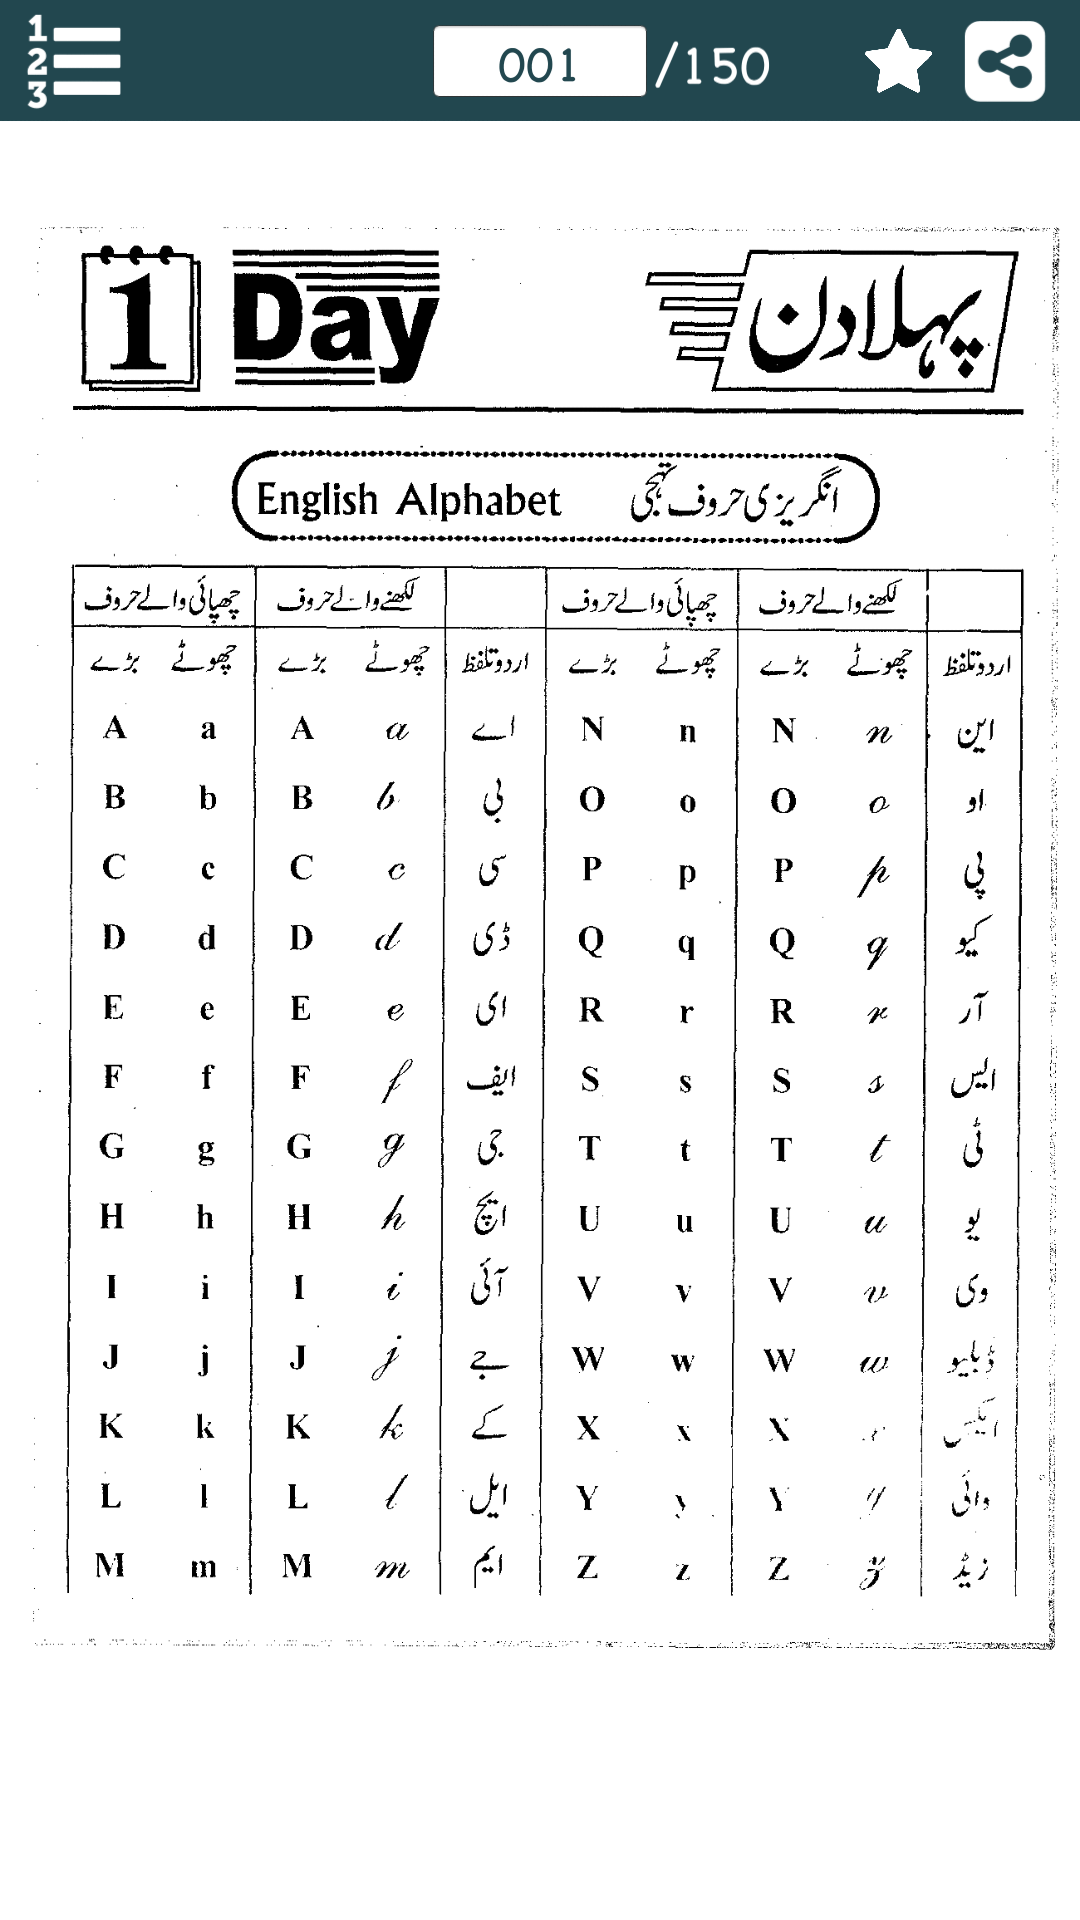 1 2 3 001 /150
1 Day پہلا دن
English Alphabet انگریزی حروف تہجی
چھپائی والے حروف لکھنے والے حروف چھپائی والے حروف لکھنے والے حروف
بڑے چھوٹے بڑے چھوٹے اردو تلفظ بڑے چھوٹے بڑے چھوٹے اردو تلفظ
A a A a اے N n N n این
B b B b بی O o O o او
C c C c سی P p P p پی
D d D d ڈی Q q Q q کیو
E e E e ای R r R r آر
F f F f ایف S s S s ایس
G g G g جی T t T t ٹی
H h H h ایچ U u U u یو
I i I i آئی V v V v وی
J j J j جے W w W w ڈبلیو
K k K k کے X x X x ایکس
L l L l ایل Y y Y y وائی
M m M m ایم Z z Z z زیڈ